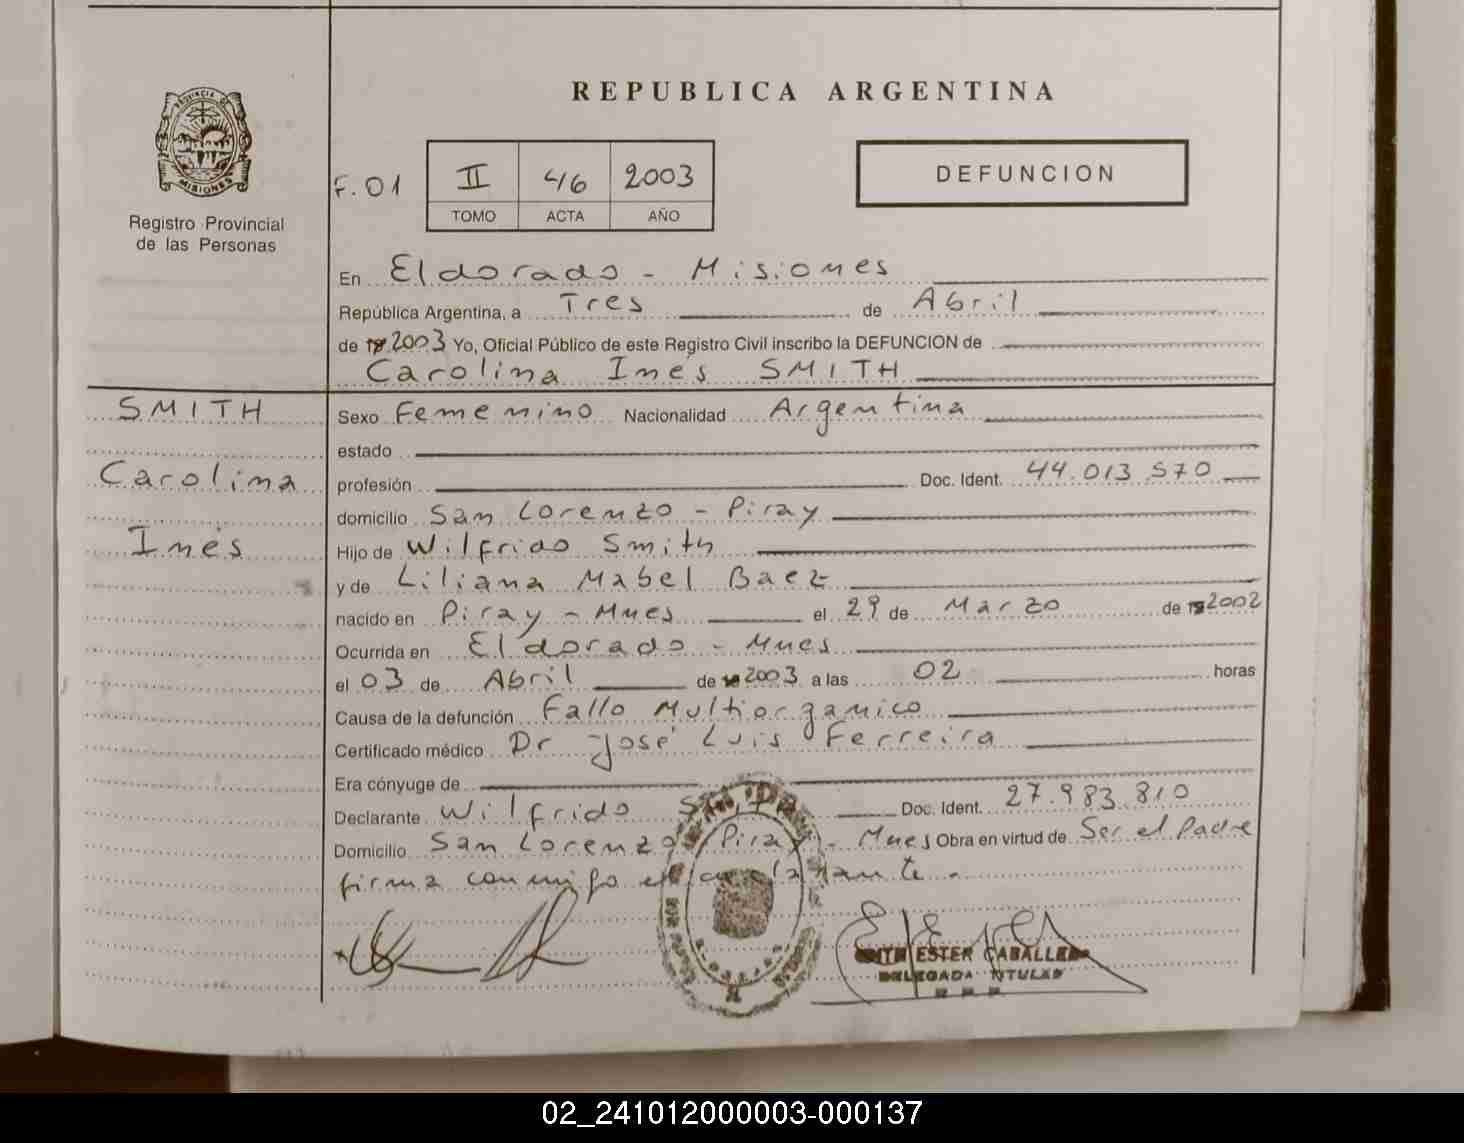 REPUBLICA ARGENTINA
PROVINCIA DE
MISIONES
Registro Provincial
de las Personas
F. 01
II 46 2003
TOMO ACTA AÑO
DEFUNCION
En Eldorado - Misiones
República Argentina, a Tres de Abril
de 2003 Yo, Oficial Público de este Registro Civil inscribo la DEFUNCION de
Carolina Inés SMITH
SMITH
Carolina
Inés
Sexo Femenino Nacionalidad Argentina
estado
profesión Doc. Ident. 44.013.570
domicilio San Lorenzo - Piray
Hijo de Wilfrido Smith
y de Liliana Mabel Baez
nacido en Piray - Mnes el 29 de Marzo de 2002
Ocurrida en Eldorado - Mnes
el 03 de Abril de 2003 a las 02 horas
Causa de la defunción Fallo Multiorganico
Certificado médico Dr José Luis Ferreira
Era cónyuge de
Declarante Wilfrido Doc. Ident. 27.983.810
Domicilio San Lorenzo Piray - Mnes Obra en virtud de Ser el Padre
firma conmigo el declarante.
ESTER CABALLE
DELEGADA TITULAR
02_241012000003-000137